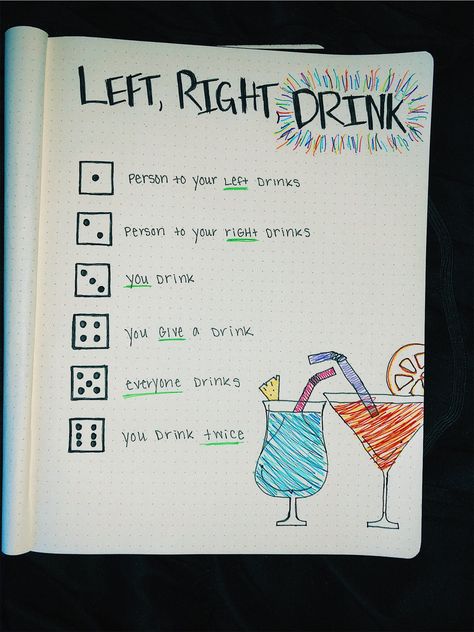 LEFT, RIGHT, DRINK
Person to your Left Drinks
Person to your right Drinks
you Drink
you Give a Drink
everyone Drinks
you Drink twice